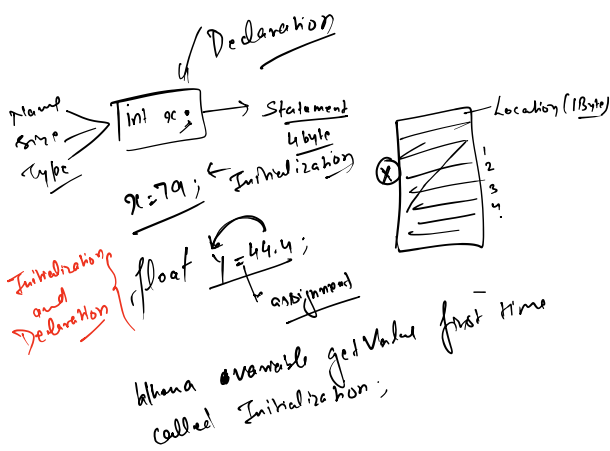 Declaration
Name
Size
Type
int x;
Statement
4byte
Location (1Byte)
1
2
3
4
X
x=79; ← Initialization
Initialization
and
Declaration
float Y=44.4;
assignment
When a variable get Value first time
called Initialization;